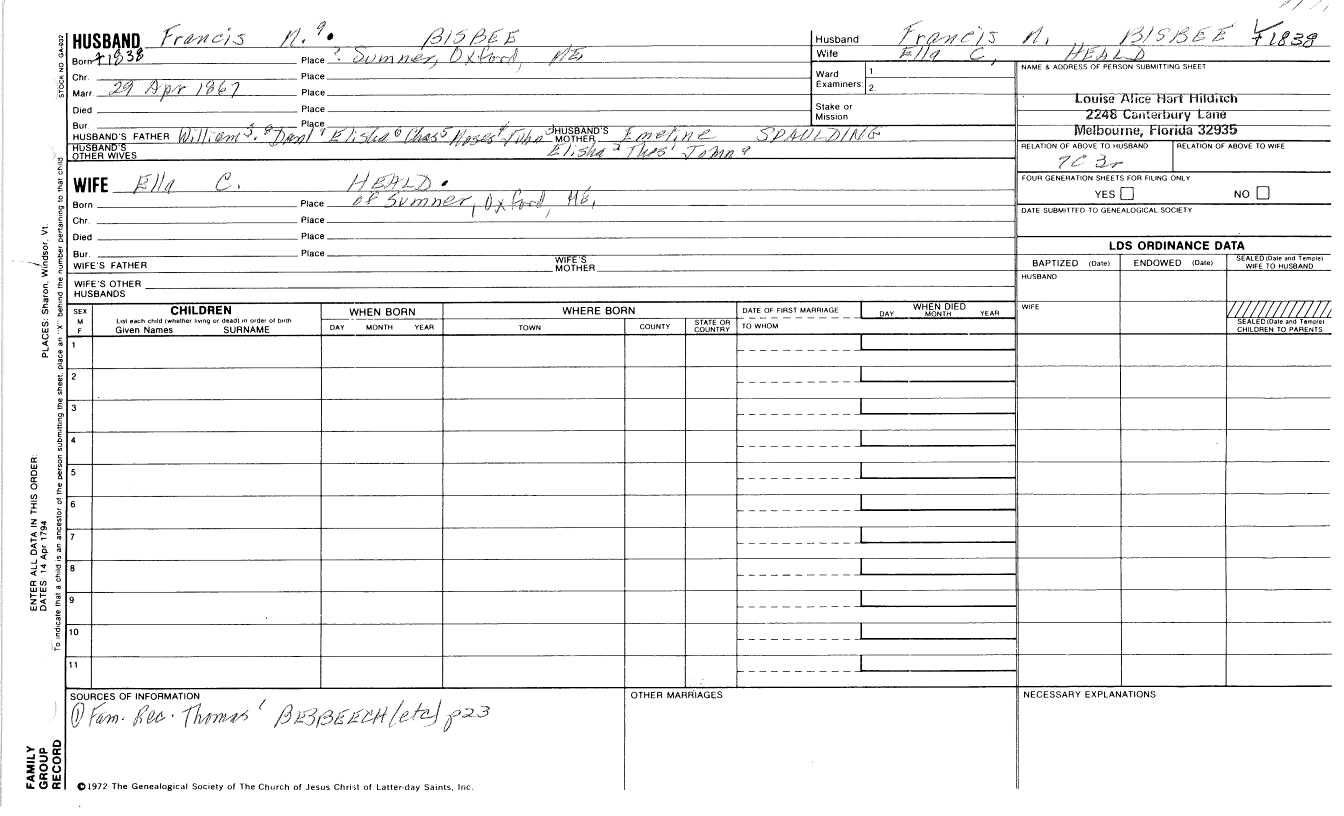 HUSBAND Francis N. 9. BISBEE
Born ±1838 Place ? Sumner, Oxford, ME
Chr. Place
Marr. 29 Apr 1867 Place
Died Place
Bur. Place
HUSBAND'S FATHER William S. 8 Danl 7 Elisha 6 Chas 5 Moses 4 John 3 HUSBAND'S MOTHER Emeline SPAULDING
HUSBAND'S OTHER WIVES Elisha 2 Thos 1 John a
Husband Francis N. BISBEE ±1838
Wife Ella C. HEALD
Ward Examiners: 1
2.
Stake or Mission
NAME & ADDRESS OF PERSON SUBMITTING SHEET
Louise Alice Hart Hilditch
2248 Canterbury Lane
Melbourne, Florida 32935
RELATION OF ABOVE TO HUSBAND RELATION OF ABOVE TO WIFE
7C 3r
FOUR GENERATION SHEETS FOR FILING ONLY
YES NO
DATE SUBMITTED TO GENEALOGICAL SOCIETY
WIFE Ella C. HEALD.
Born Place of Sumner, Oxford, ME,
Chr. Place
Died Place
Bur. Place
WIFE'S FATHER WIFE'S MOTHER
WIFE'S OTHER HUSBANDS
LDS ORDINANCE DATA
BAPTIZED (Date) ENDOWED (Date) SEALED (Date and Temple) WIFE TO HUSBAND
HUSBAND
WIFE
SEALED (Date and Temple) CHILDREN TO PARENTS
SEX M F
CHILDREN
List each child (whether living or dead) in order of birth
Given Names SURNAME
WHEN BORN
DAY MONTH YEAR
WHERE BORN
TOWN COUNTY STATE OR COUNTRY
DATE OF FIRST MARRIAGE
TO WHOM
WHEN DIED
DAY MONTH YEAR
1
2
3
4
5
6
7
8
9
10
11
SOURCES OF INFORMATION
① Fam. Rec. Thomas' BESBEECH (etc) p23
OTHER MARRIAGES
NECESSARY EXPLANATIONS
©1972 The Genealogical Society of The Church of Jesus Christ of Latter-day Saints, Inc.
STOCK NO GA-037
To indicate that a child is an ancestor of the person submitting the sheet, place an "X" behind the number pertaining to that child
PLACES: Sharon, Windsor, Vt.
ENTER ALL DATA IN THIS ORDER:
DATES 14 Apr 1794
FAMILY
GROUP
RECORD